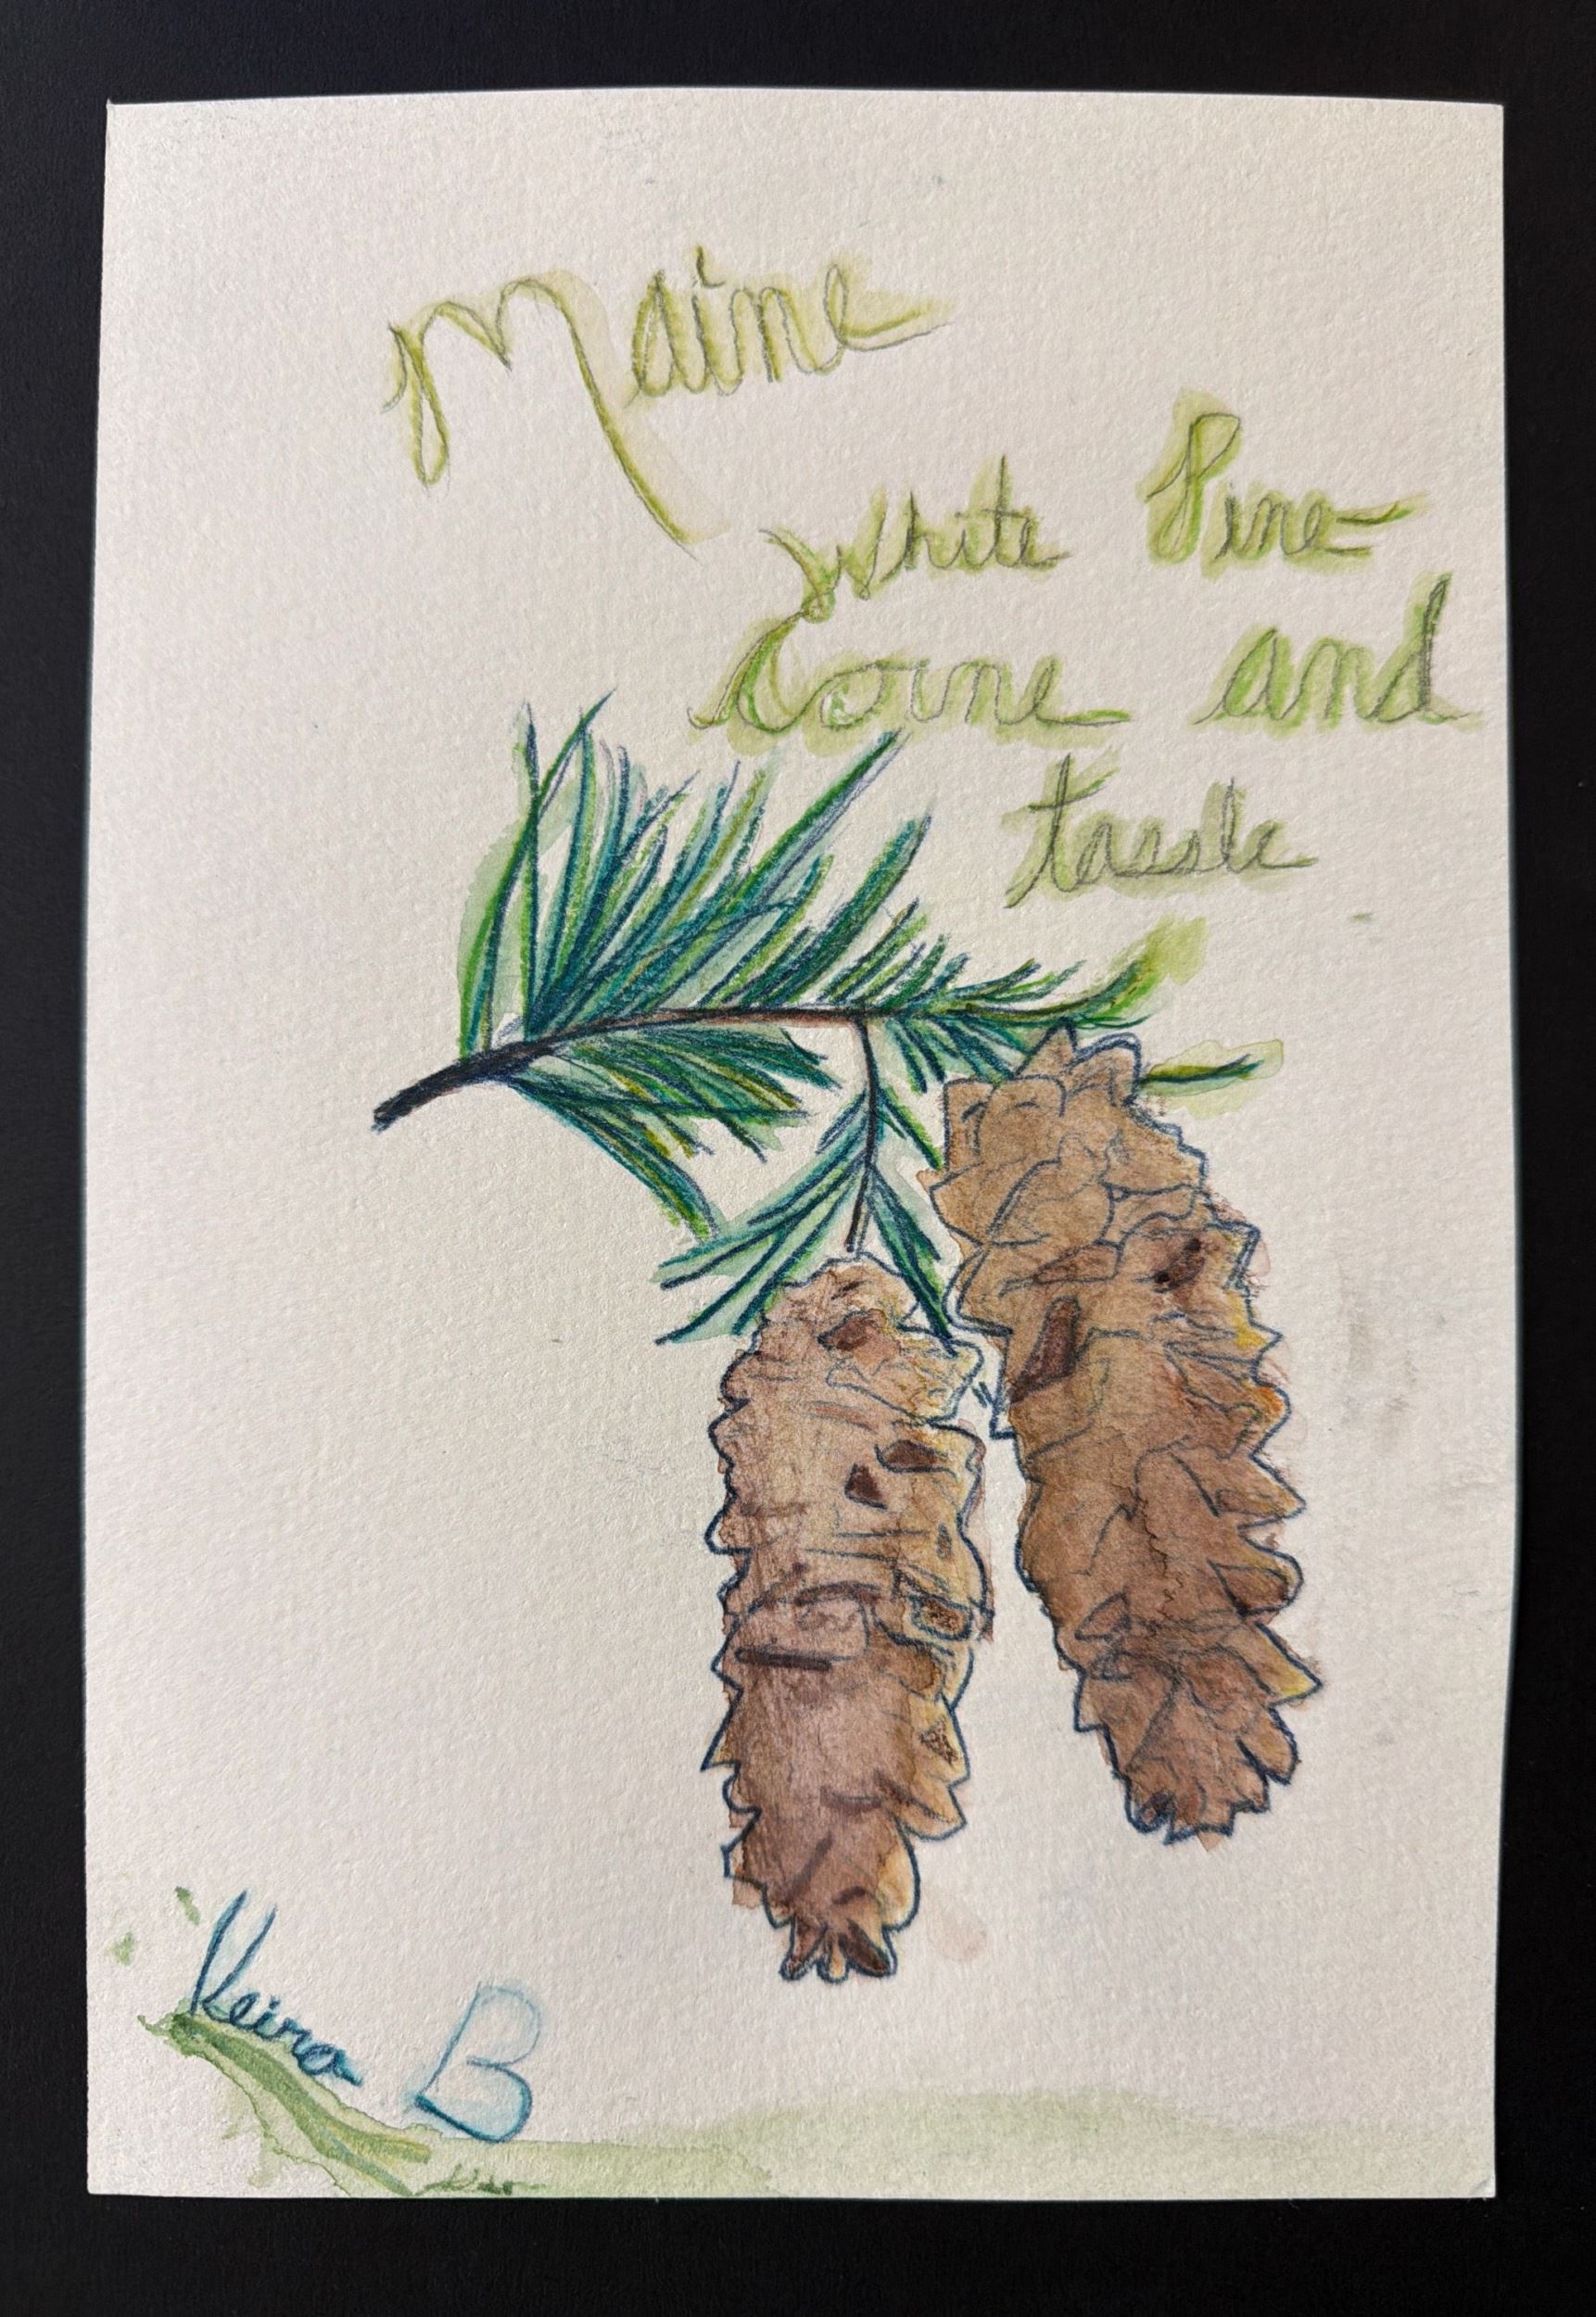 Maine
White Pine-
Cone and
tassle
Keira B